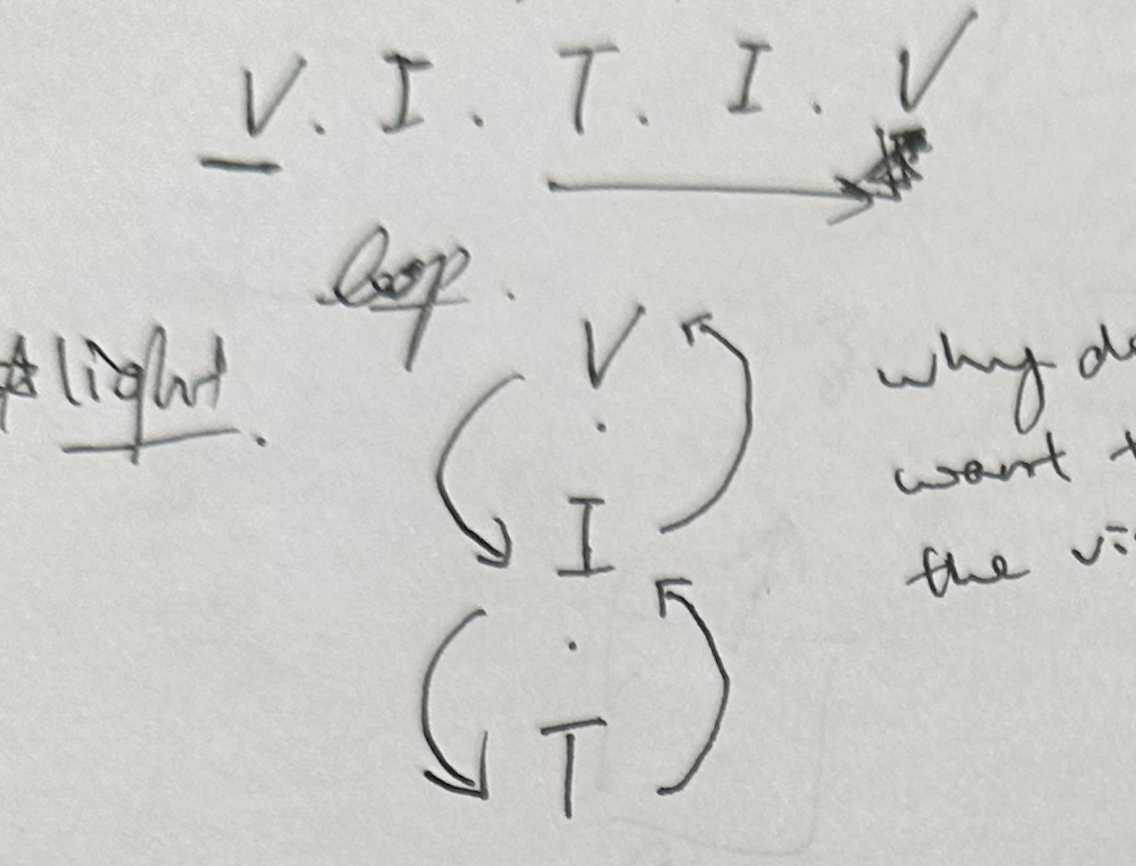 V. I. T. I. V
loop.
light.
V
why
.
want
I
the
.
T